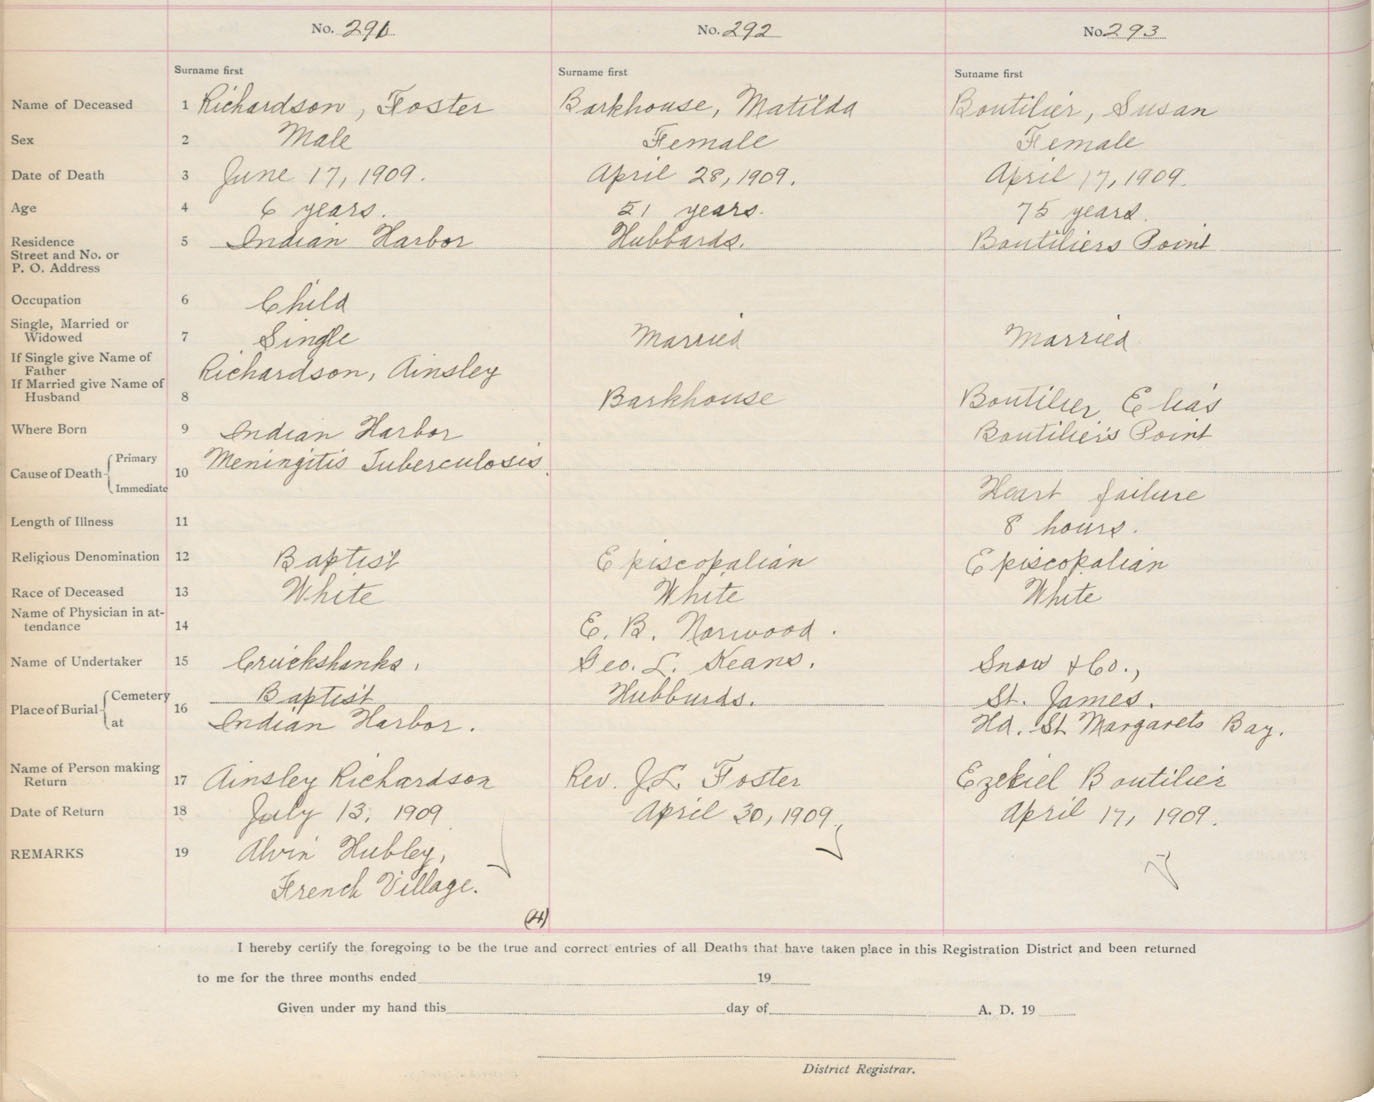 No. 291 No. 292 No. 293
Surname first Surname first Surname first
Name of Deceased 1 Richardson, Foster Barkhouse, Matilda Boutilier, Susan
Sex 2 Male Female Female
Date of Death 3 June 17, 1909. April 28, 1909. April 17, 1909.
Age 4 6 years. 51 years. 75 years.
Residence 5 Indian Harbor Hubbards. Boutiliers Point
Street and No. or
P. O. Address
Occupation 6 Child
Single, Married or
Widowed 7 Single Married Married
If Single give Name of
Father Richardson, Ainsley
If Married give Name of
Husband 8 Barkhouse Boutilier, Elias
Where Born 9 Indian Harbor Boutilier's Point
Cause of Death Primary 10 Meningitis Tuberculosis.
Immediate Heart failure
Length of Illness 11 8 hours.
Religious Denomination 12 Baptist Episcopalian Episcopalian
Race of Deceased 13 White White White
Name of Physician in at-
tendance 14 E. B. Norwood.
Name of Undertaker 15 Cruickshanks. Geo. L. Keans. Snow & Co.,
Place of Burial Cemetery 16 Baptist Hubburds. St. James.
at Indian Harbor. Hd. St Margarets Bay.
Name of Person making
Return 17 Ainsley Richardson Rev. J.L. Foster Ezekiel Boutilier
Date of Return 18 July 13, 1909 April 30, 1909 April 17, 1909.
REMARKS 19 Alvin Hubley,
French Village.
(4)
I hereby certify the foregoing to be the true and correct entries of all Deaths that have taken place in this Registration District and been returned
to me for the three months ended 19
Given under my hand this day of A. D. 19
District Registrar.